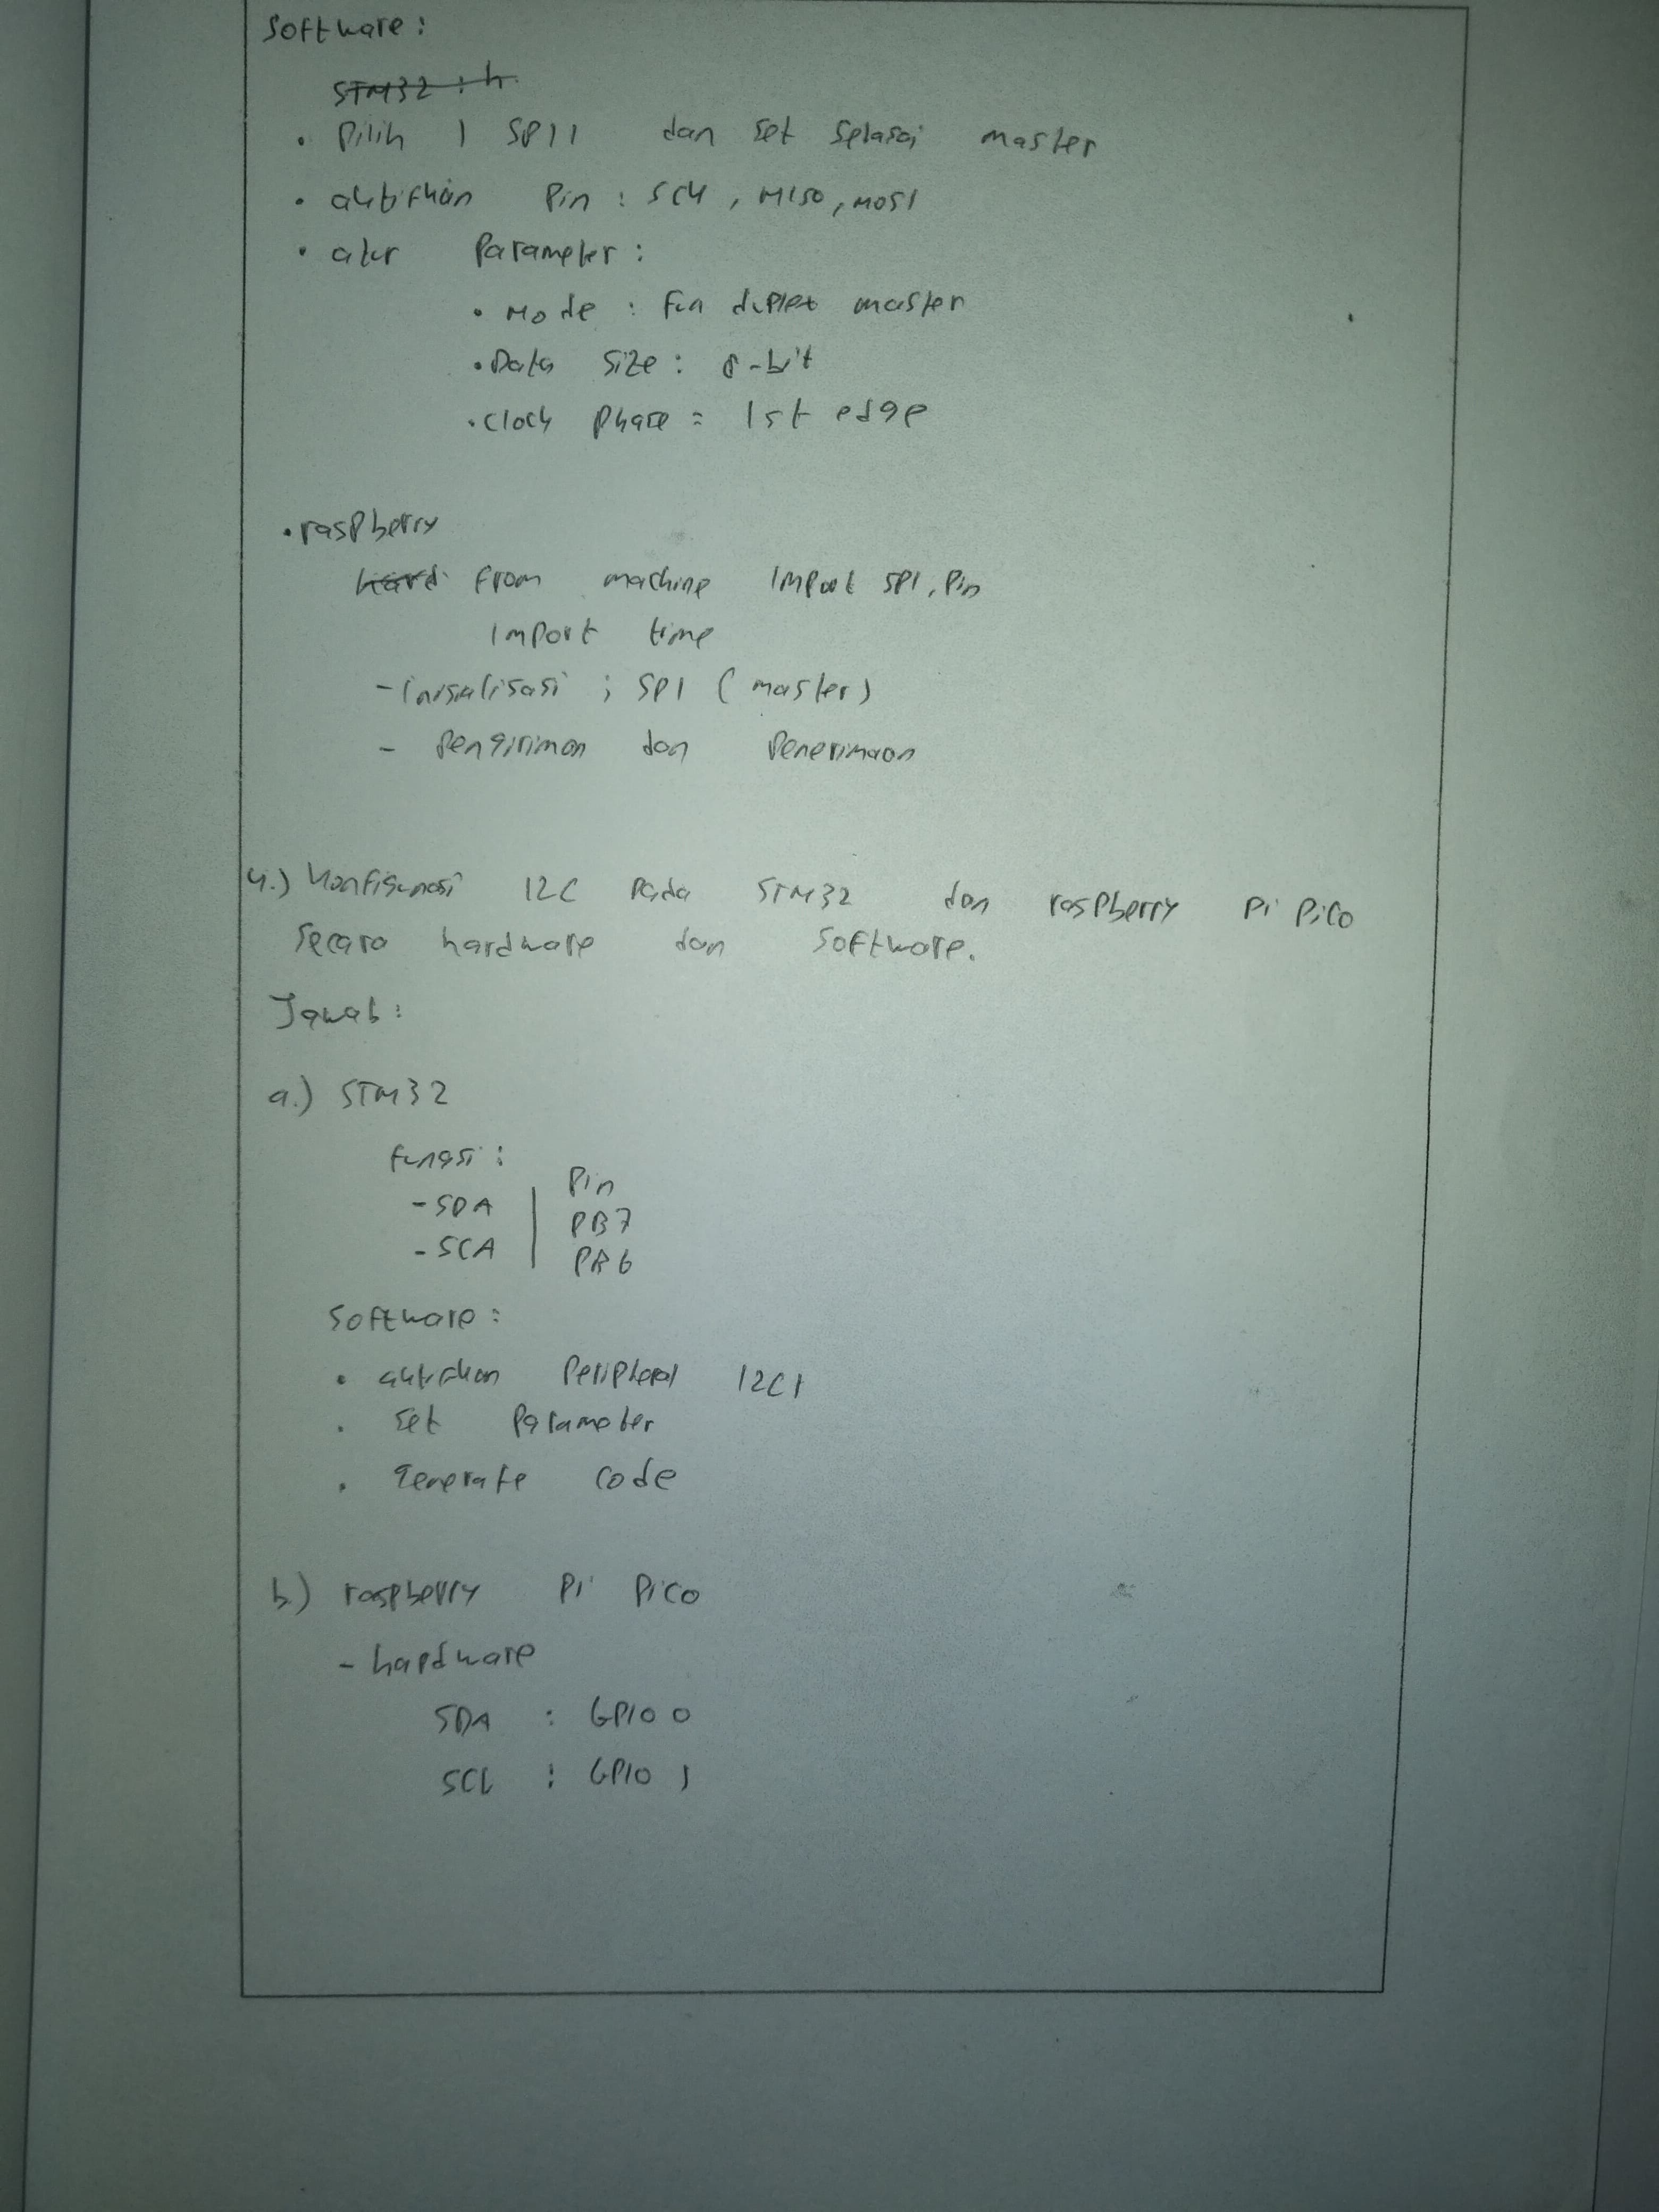 Software :
STM32 : h
• Pilih 1 SPI1 dan set sebagai master
• aktifkan Pin : SCK, MISO, MOSI
• atur Parameter :
• Mode : Full duplex master
• Data size : 8-bit
• Clock Phase = 1st edge
• raspberry
hard from machine import SPI, Pin
import time
- Inisialisasi ; SPI (master)
- Pengiriman dan Penerimaan
4.) Konfigurasi I2C pada STM32 dan raspberry Pi Pico
secara hardware dan software.
Jawab :
a.) STM32
fungsi :
Pin
- SDA | PB7
- SCA | PB6
Software :
• aktifkan Peripheral I2C1
• set Parameter
• Generate code
b.) raspberry Pi Pico
- hardware
SDA : GPIO 0
SCL : GPIO 1